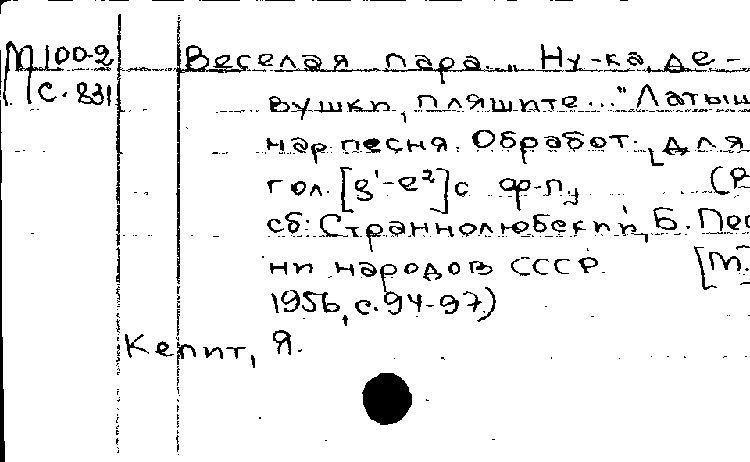 М 100-2 Веселая пара „Ну-ка, де-
с. 831 вушки, пляшите..." Латыш
нар песня. Обработ. [для
гол. [g¹-e²] с ф-п, (В
сб: Страннолюбский, Б. Пес
ни народов СССР. [М.
1956, с. 94-97)
Кепит, Я.